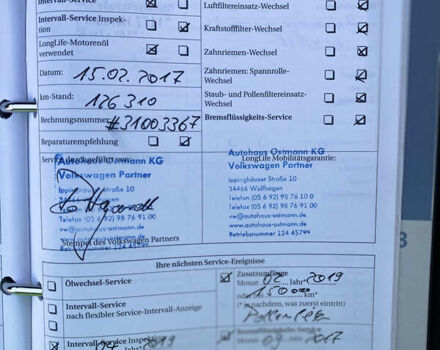 Intervall-Service
Luftfiltereinsatz-Wechsel
Intervall-Service Inspek-
tion
Kraftstofffilter-Wechsel
LongLife-Motorenöl
verwendet
Zahnriemen-Wechsel
Datum: 15.02.2017
Zahnriemen: Spannrolle-
Wechsel
km-Stand: 126 310
Staub- und Pollenfiltereinsatz-
Wechsel
Rechnungsnummer: #31003367
Bremsflüssigkeits-Service
Reparaturempfehlung
Service durchgeführt von:
LongLife Mobilitätsgarantie:
Autohaus Ostmann KG
Volkswagen Partner
Ippinghäuser Straße 10
34466 Wolfhagen
Telefon (05 6 92) 98 76 91 00
vw@autohaus-ostmann.de
Stempel des Volkswagen Partners
Autohaus Ostmann KG
Volkswagen Partner
Ippinghäuser Straße 10
34466 Wolfhagen
Telefon (05 6 92) 98 76 10 0
Telefax (05 6 92) 98 76 91 00
vw@autohaus-ostmann.de
www.autohaus-ostmann.de
Betriebsnummer 124 45799
Ihre nächsten Service-Ereignisse
Ölwechsel-Service
Monat 02 Jahr 2019
150000 km*
(* je nachdem, was zuerst eintritt)
Intervall-Service
nach flexibler Service-Intervall-Anzeige
Pollenfilter
Intervall-Service
2019
09 2017
3